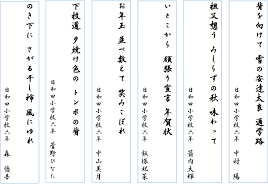 背を向けて 雪の安達太良 通学路
日和田小学校六年 中村 陽
祖父想う みしらずの秋 味わって
日和田小学校六年 箭内大輝
いとこから 頑張り宣言 年賀状
日和田小学校六年 飯塚妃菜
お年玉 並べ数えて 笑みこぼれ
日和田小学校六年 中山美月
下校道 夕焼け色の トンボの背
日和田小学校六年 菅野ひなた
のき下に さがる干し柿 風にゆれ
日和田小学校六年 森 悠吾